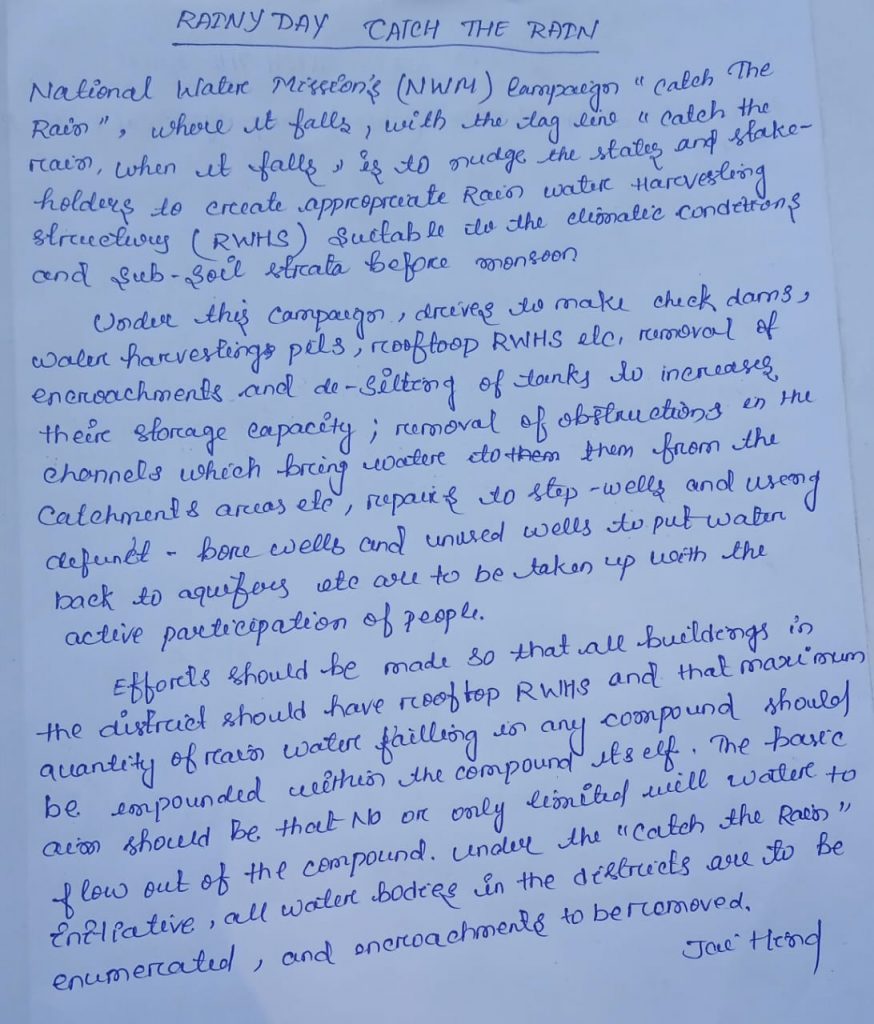 RAINY DAY CATCH THE RAIN
National Water Mission's (NWM) Campaign "Catch The
Rain", where it falls, with the tag line "catch the
rain, when it falls, is to nudge the states and stake-
holders to create appropriate Rain water Harvesting
structures (RWHS) Suitable to the climatic conditions
and sub-soil strata before monsoon
Under this campaign, drives to make check dams,
water harvestings pits, rooftoop RWHS etc, removal of
encroachments and de-silting of tanks to increases
their storage capacity; removal of obstructions in the
channels which bring water to them them from the
Catchments areas etc, repairs to step-wells and using
defunct - bore wells and unused wells to put water
back to aquifers etc are to be taken up with the
active participation of people.
Efforts should be made so that all buildings in
the district should have rooftop RWHS and that maximum
quantity of rain water failling in any compound should
be impounded within the compound itself. The basic
aim should Be that No or only limited will water to
flow out of the compound. under the "catch the Rain"
initiative, all water bodies in the districts are to be
enumerated, and encroachments to be removed.
Jai Hind